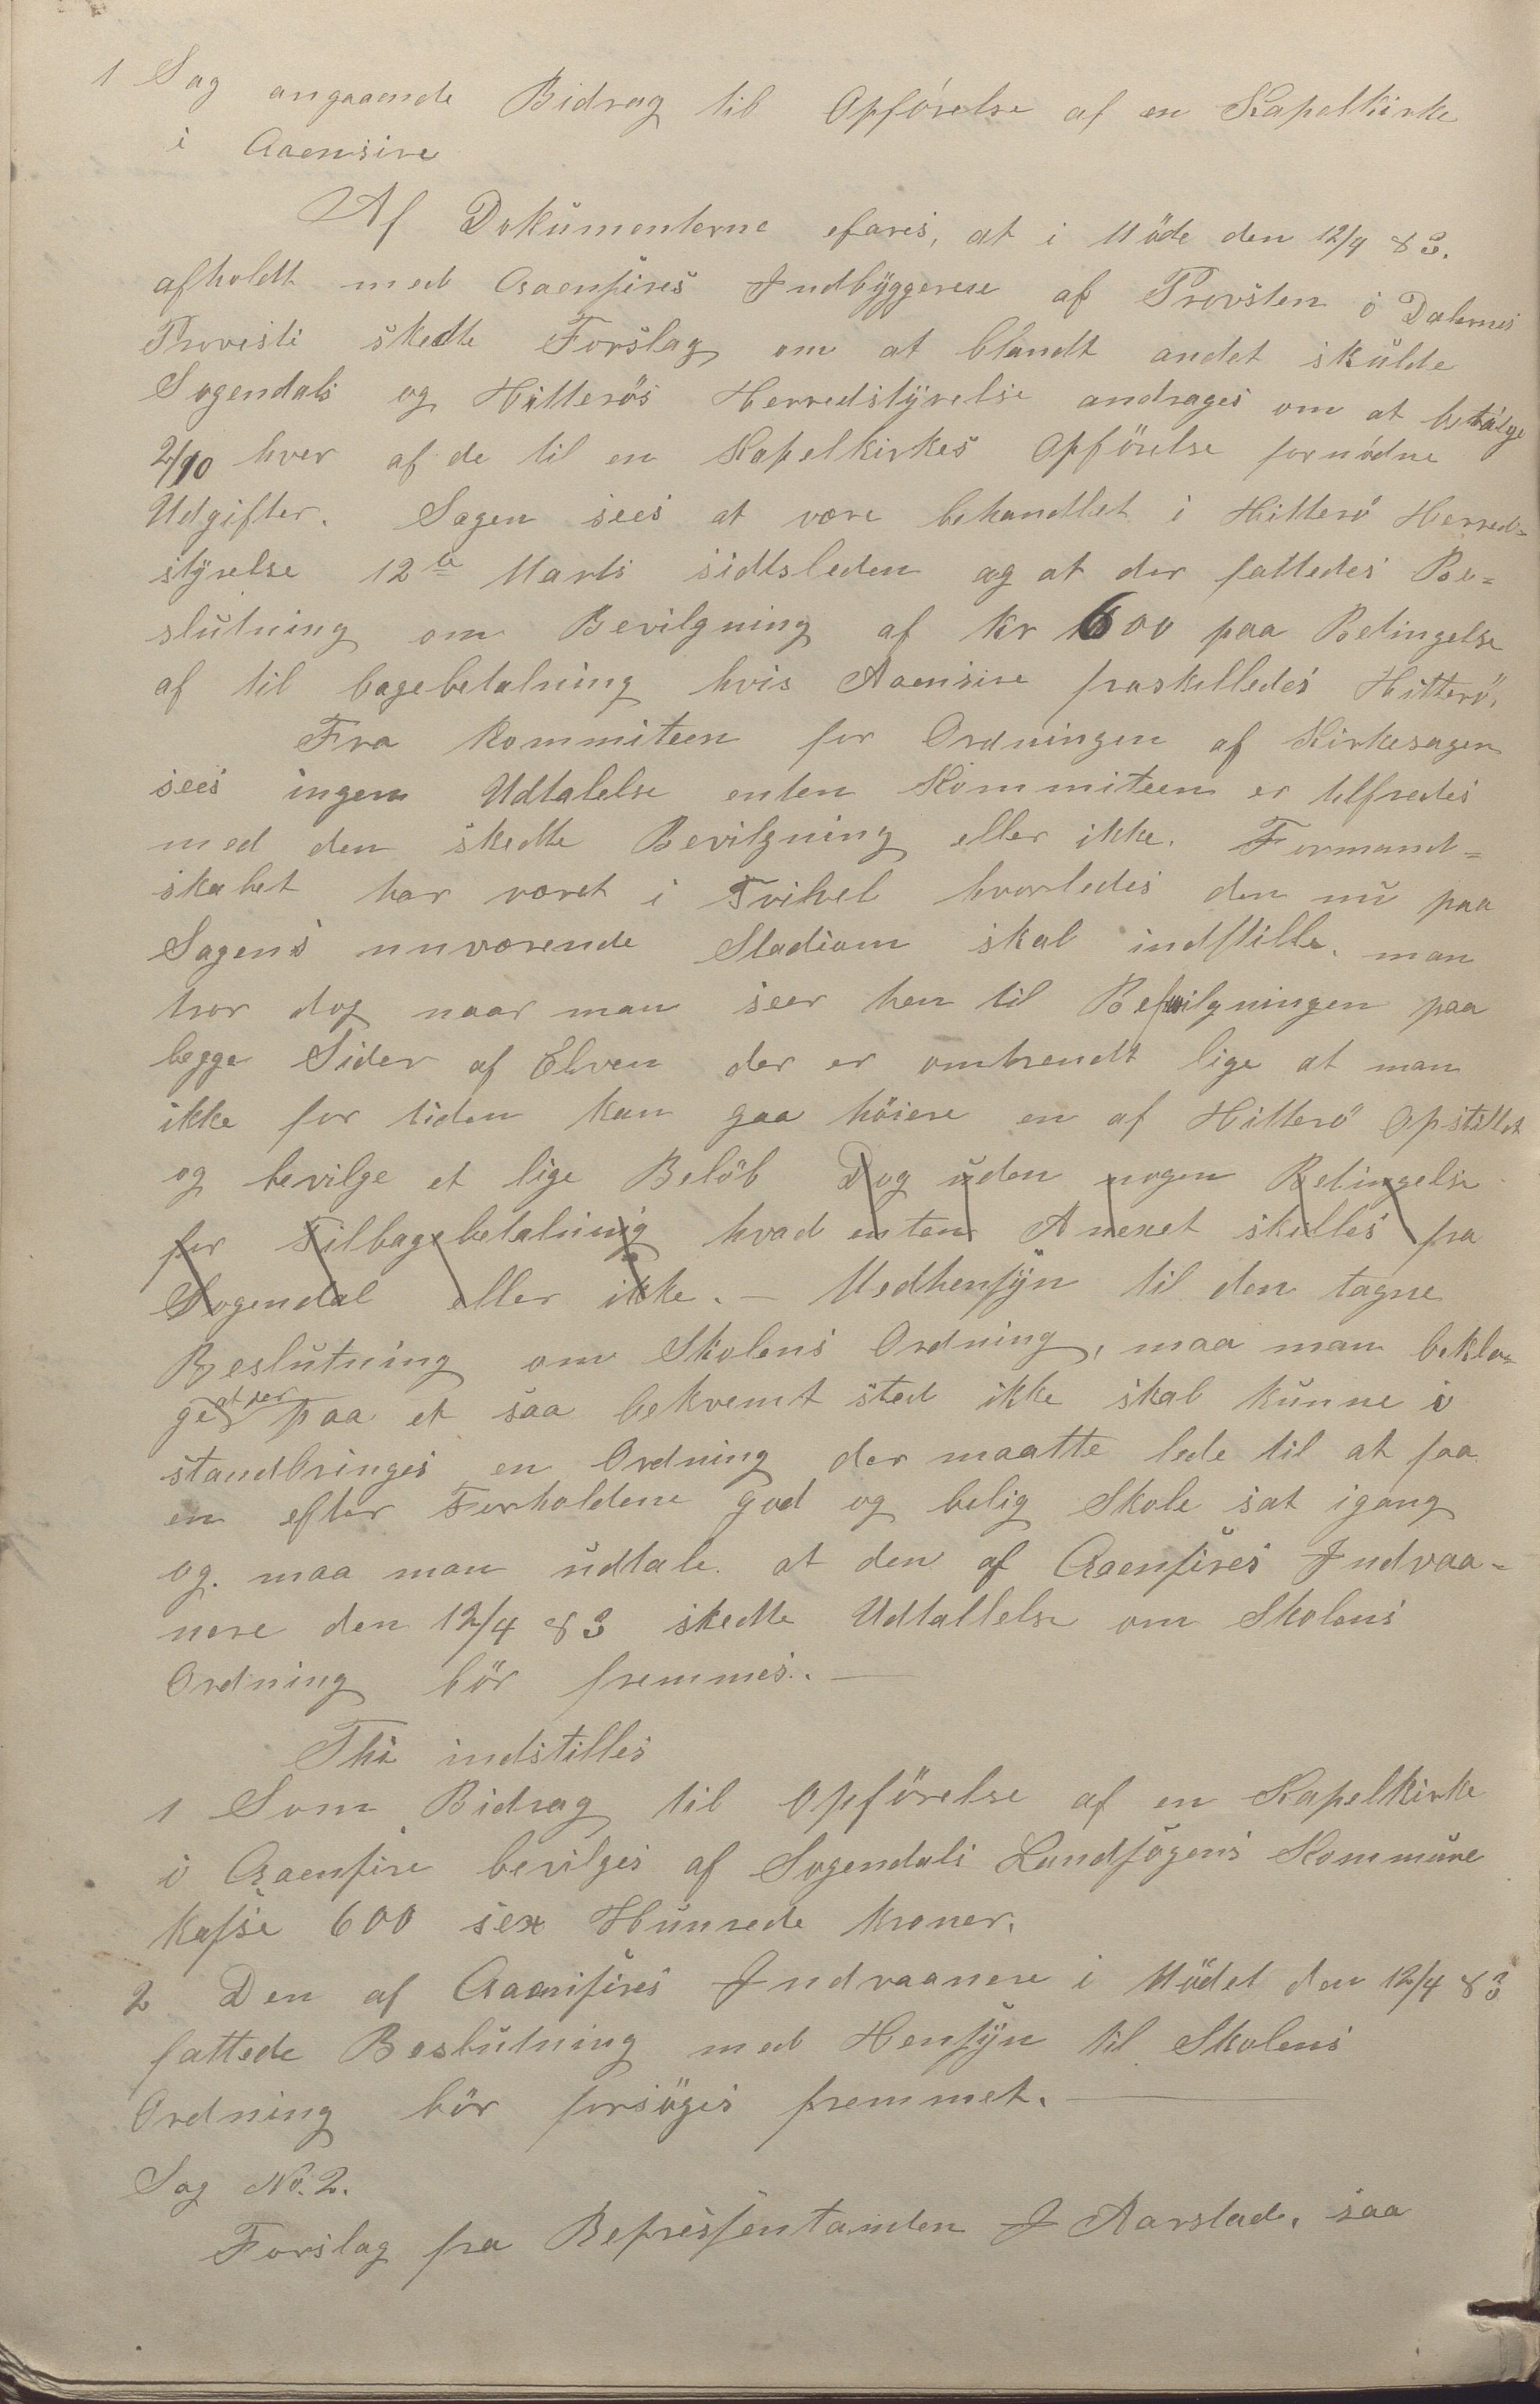 1 Sag angaaende Bidrag til Opförelse af en Kapelkirke
i Aaensire
Af Dokumenterne efares, at i Möde den 12/4 83.
afholdt med Aaensires Indbyggerere af Provsten i Dalernes
Provesti skedte Forslag om at blandt andet skulde
Sogendals og Hitterös Herredstyrelse andrages om at betalge
2/10 hver af de til en Kapelkirkes Opförelse fornödne
Udgifter. Sagen sees at være behandlet i Hitterö Herred=
styrelse 12te Marts sidtsleden og at der fattedes Be=
slutning om Bevilgning af Kr 600 paa Betingelse
af til bagebetalning hvis Aaensire fraskilledes Hitterö,
Fra Kommiteen for Ordningen af Kirkesagen
sees ingen Udtalelse enten Kommiteen er tilfredes
med den skedte Bevilgning eller ikke. Formand=
skabet har været i Tvihel hvorledes den nu paa
Sagens nuværende Stadium skal indstille. man
tror dog naar man seer hen til Befvilgningen paa
begge Sider af Elven der er omtrendt lige at man
ikke for tiden kan gaa höiere en af Hitterö Opstillet
og bevilge et lige Belöb Dog uden nogen Betingelse
for Tilbagebetalning hvad enten Anexet skilles fra
Sogendal eller ikke. — Medhensyn til den tagne
Beslutning om Skolens Ordning, maa man bekla=
ge at der paa et saa bekvemt sted ikke skal kunne i
standbringes en Ordning der maatte lede til at faa
en efter Forholdene god og belig Skole sat igang
og. maa man udtale at den af Aaensires Indvaa=
nere den 12/4 83 skedte Udtallelse om Skolens
Ordning bör fremmes. —
Thi indstilles
1 Som Bidrag til Opförelse af en Kapelkirke
i Aaensire bevilges af Sogendals Landsogens Kommune
kasse 600 sex Hunrede Kroner.
2 Den af Aaensires Indvaanere i Mödet den 12/4 83
fattede Beslutning med Hensyn til Skolens
Ordning bör forsöges fremmet. —
Sag No. 2.
Forslag fra Repressentanten J Aarstad. saa